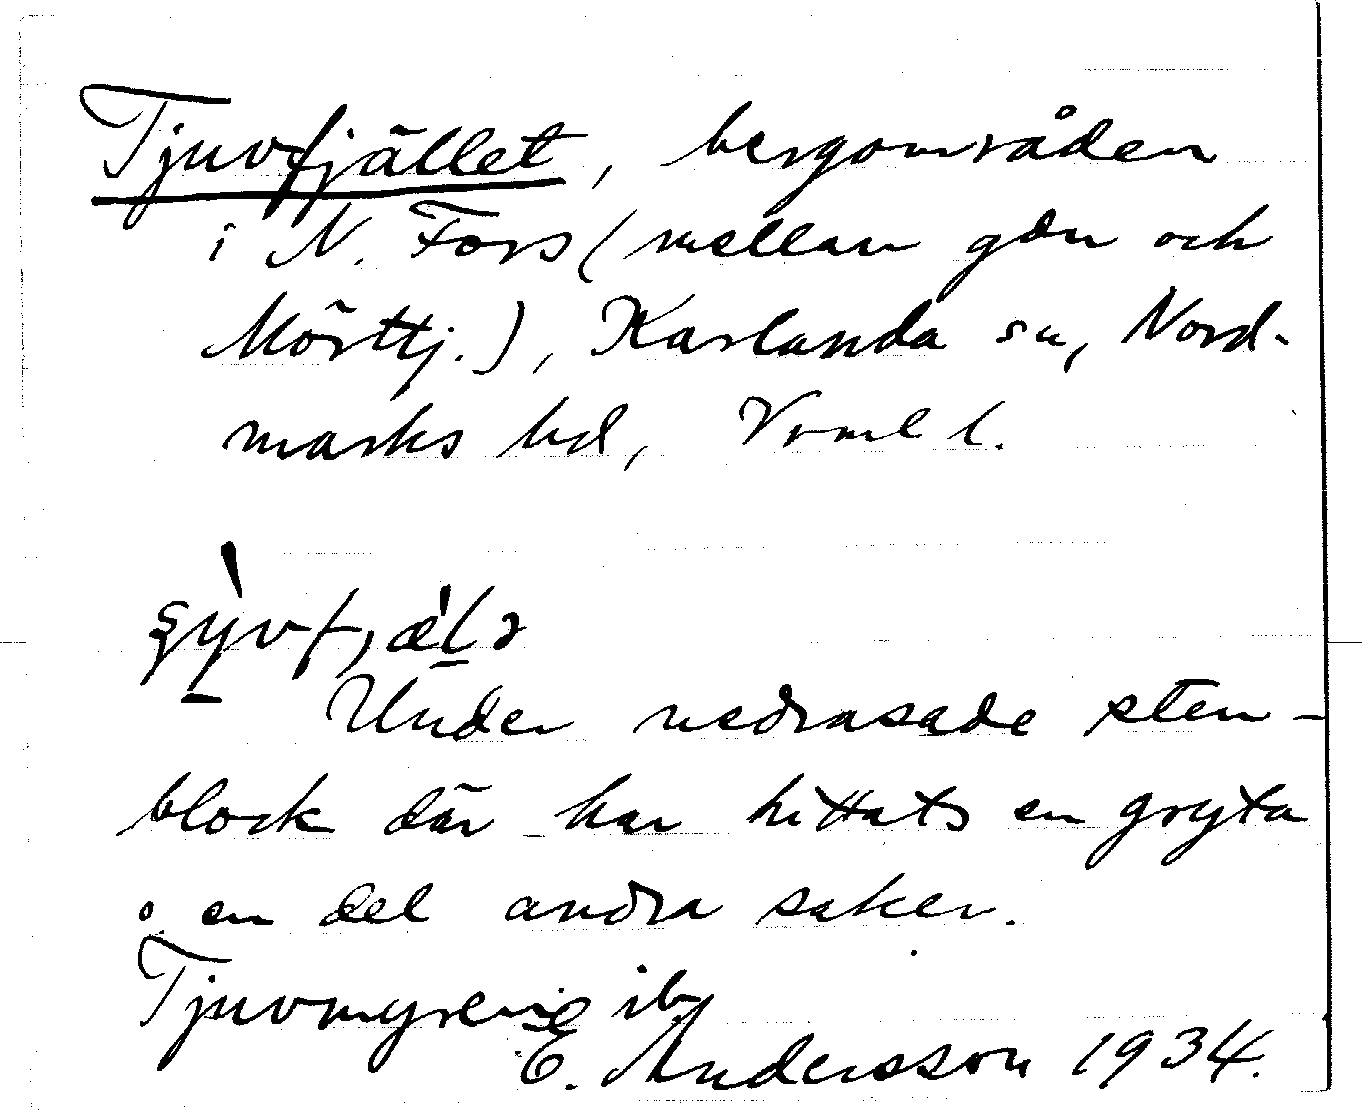 Tjuvfjället, bergområden
i N. Fors (mellan gdn och
Mörttj.), Karlanda sn, Nord-
marks hd, Vrml l.
Under nedrasade sten-
block där har hittats en gryta
o. en del andra saker.
Tjuvmyren ib.
E. Andersson 1934.